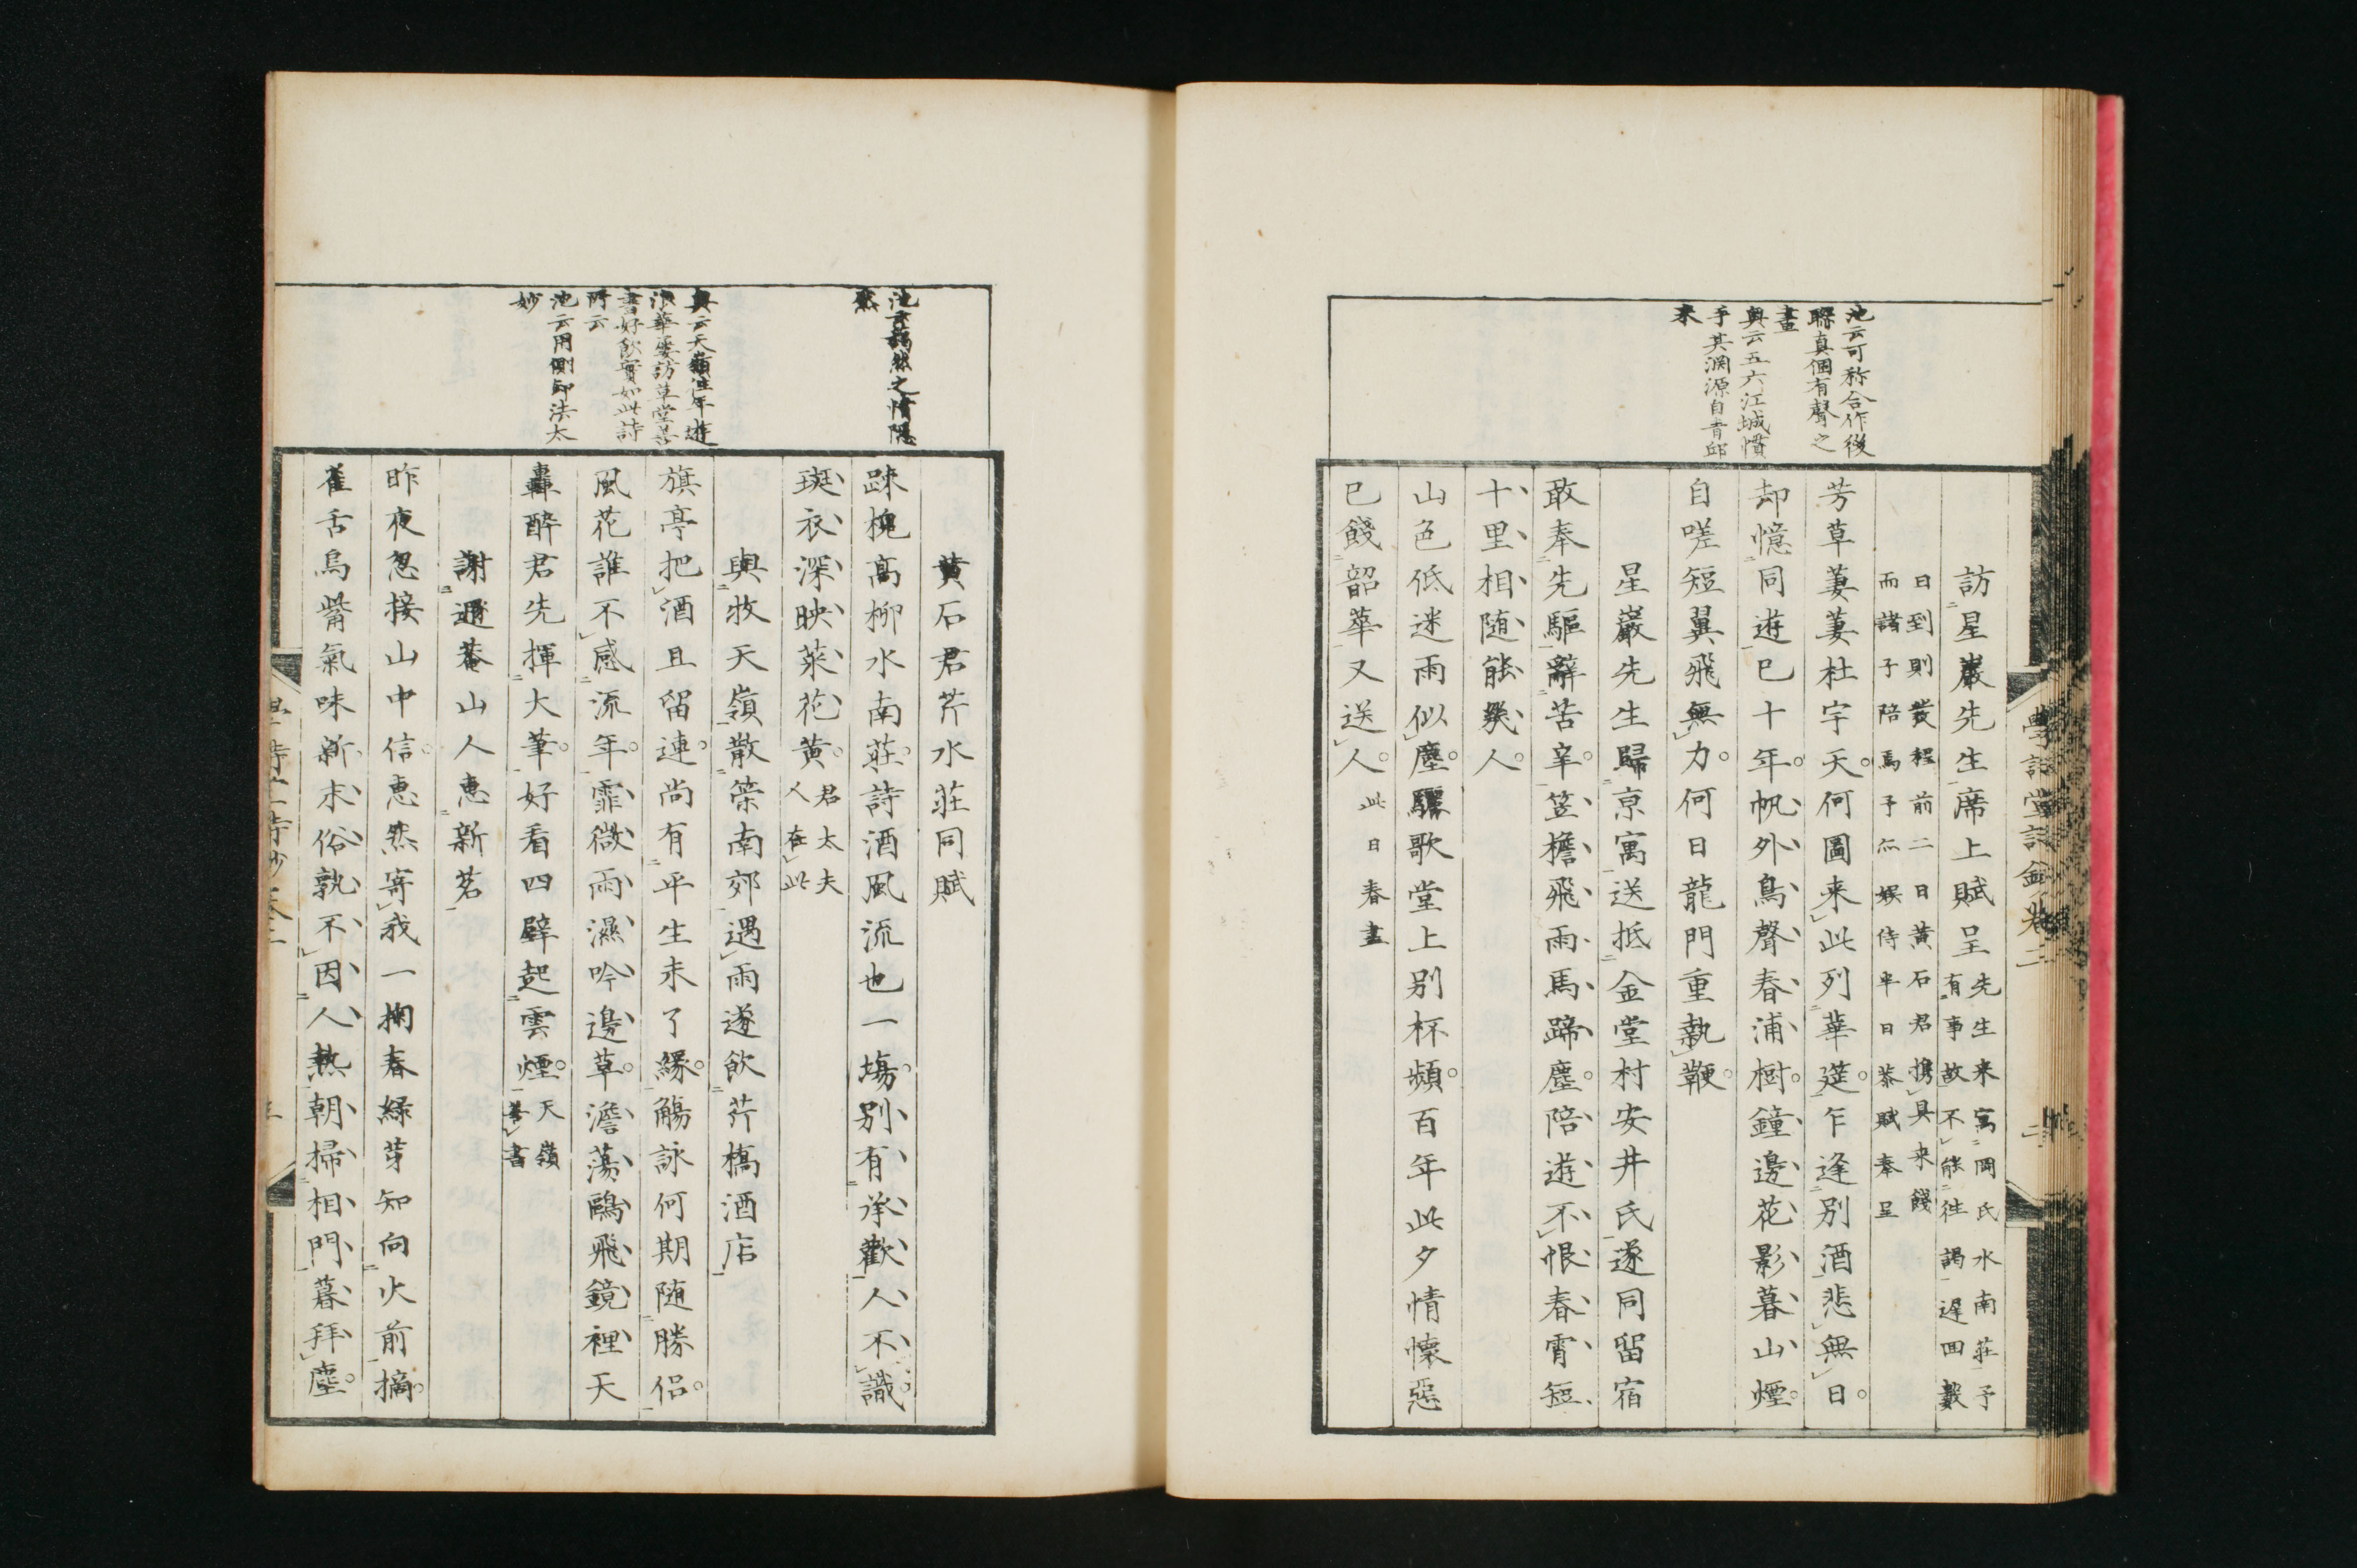 池云可称合作後
聯真個有聲之
畫
奥云五六江城慣
手其淵源自青邱
来
訪星巖先生席上賦呈
先生来寓岡氏水南莊予
有事故不能往謁遅囬數
日到則發程前二日黄石君携具来餞
而諸子陪焉予亦娯侍半日恭賦奉呈
芳草萋萋杜宇天何圖来此列華筵乍逢別酒悲無日
却憶同遊已十年帆外鳥聲春浦樹鐘邊花影暮山煙
自嗟短翼飛無力何日龍門重執鞭
星巖先生歸京寓送抵金堂村安井氏遂同留宿
敢奉先驅辭苦辛笠檐飛雨馬蹄塵陪遊不恨春宵短
十里相随能幾人
山色低迷雨似塵驪歌堂上別杯頻百年此夕情懐惡
已餞韶華又送人
此日春盡
池云藹然之情隠
然
奥云天嶺往年遊
浪華屡訪草堂善
書好飲實如此詩
所云
池云用側卸法太
妙
黄石君芹水莊同賦
踈槐高柳水南莊詩酒風流也一塲別有承歡人不識
斑衣深映菜花黄
君太夫
人在此
與牧天嶺散策南郊遇雨遂飲芹橋酒店
旗亭把酒且留連尚有平生未了縁觴詠何期随勝侶
風花誰不感流年霏微雨濕吟邊草澹蕩鷗飛鏡裡天
轟醉君先揮大筆好看四壁起雲煙
天嶺
善書
謝遯菴山人惠新茗
昨夜忽接山中信惠然寄我一掬春緑芽知向火前摘
雀舌烏觜氣味新末俗孰不因人熱朝掃相門暮拜塵